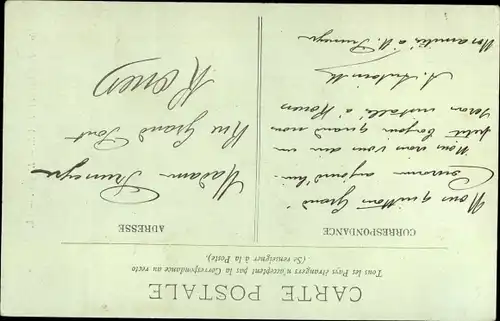 CARTE POSTALE
Tous les Pays étrangers n'acceptent pas la Correspondance au recto
(Se renseigner à la Poste).
CORRESPONDANCE
ADRESSE
Nous quittons Grand
aujourd'hui.
Nous vous
petit bonjour quand nous
serons installés à Rouen
Mes amitiés à M.
Madame
Rue Grand Pont
Rouen